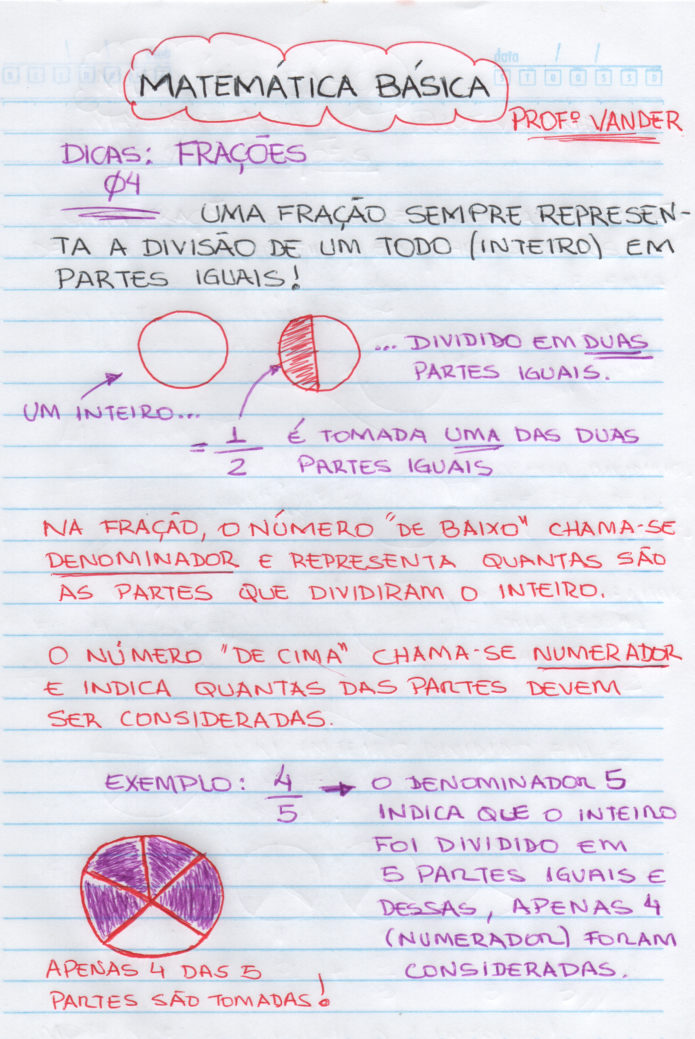 data / /
MATEMÁTICA BÁSICA
PROFº VANDER
DICAS: FRAÇÕES
04
UMA FRAÇÃO SEMPRE REPRESEN-
TA A DIVISÃO DE UM TODO (INTEIRO) EM
PARTES IGUAIS!
... DIVIDIDO EM DUAS
PARTES IGUAIS.
UM INTEIRO...
= 1/2 É TOMADA UMA DAS DUAS
PARTES IGUAIS
NA FRAÇÃO, O NÚMERO "DE BAIXO" CHAMA-SE
DENOMINADOR E REPRESENTA QUANTAS SÃO
AS PARTES QUE DIVIDIRAM O INTEIRO.
O NÚMERO "DE CIMA" CHAMA-SE NUMERADOR
E INDICA QUANTAS DAS PARTES DEVEM
SER CONSIDERADAS.
EXEMPLO: 4/5 → O DENOMINADOR 5
INDICA QUE O INTEIRO
FOI DIVIDIDO EM
5 PARTES IGUAIS E
DESSAS, APENAS 4
(NUMERADOR) FORAM
CONSIDERADAS.
APENAS 4 DAS 5
PARTES SÃO TOMADAS!